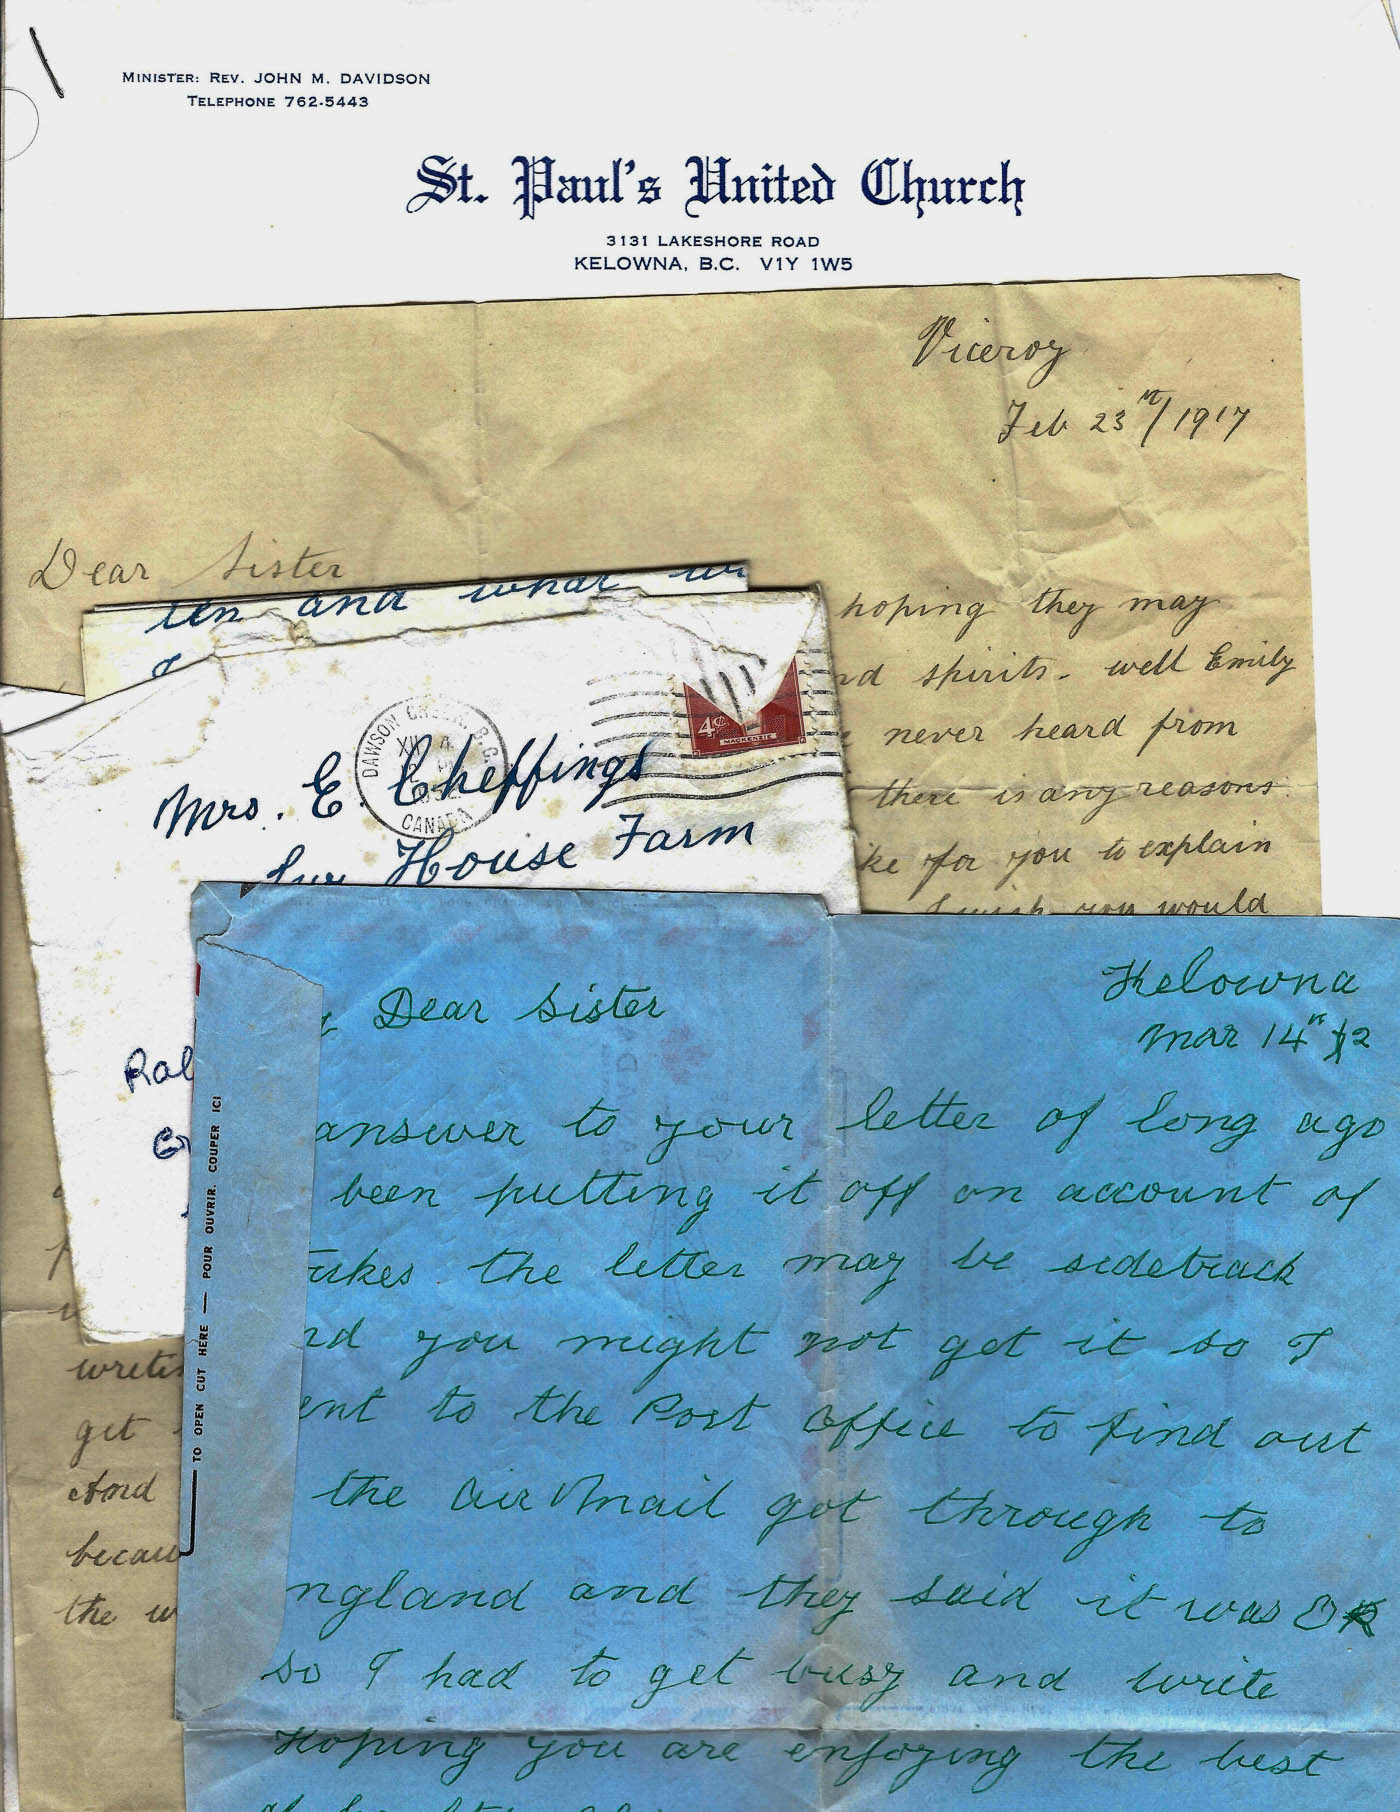 MINISTER: REV. JOHN M. DAVIDSON
TELEPHONE 762-5443
St. Paul's United Church
3131 LAKESHORE ROAD
KELOWNA, B.C. V1Y 1W5
Viceroy
Feb 23rd/1917
Dear Sister
hoping they may
spirits. well Emily
never heard from
there is any reasons
for you to explain
I wish you would
writin
get
And
becau
the w
ten and what
DAWSON CREEK. B.C.
XII 4
CANADA
4¢
MACKENZIE
Mrs. E. Cheffings
House Farm
TO OPEN CUT HERE — POUR OUVRIR. COUPER ICI
Dear Sister
Kelowna
Mar 14th 72
answer to your letter of long ago
been putting it off on account of
the letter may be sidetrack
you might not get it so I
ent to the Post Office to find out
the Air Mail got through to
ngland and they said it was OK
so I had to get busy and write
Hoping you are enjoying the best